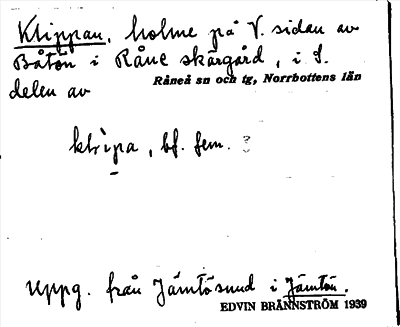 Klippan, holme på V. sidan av
Båtön i Råne skärgård, i S.
Råneå sn och tg, Norrbottens län
delen av
klìpa, bf. fem. ?
Uppg. från Jämtösund i Jämtön.
EDVIN BRÄNNSTRÖM 1939